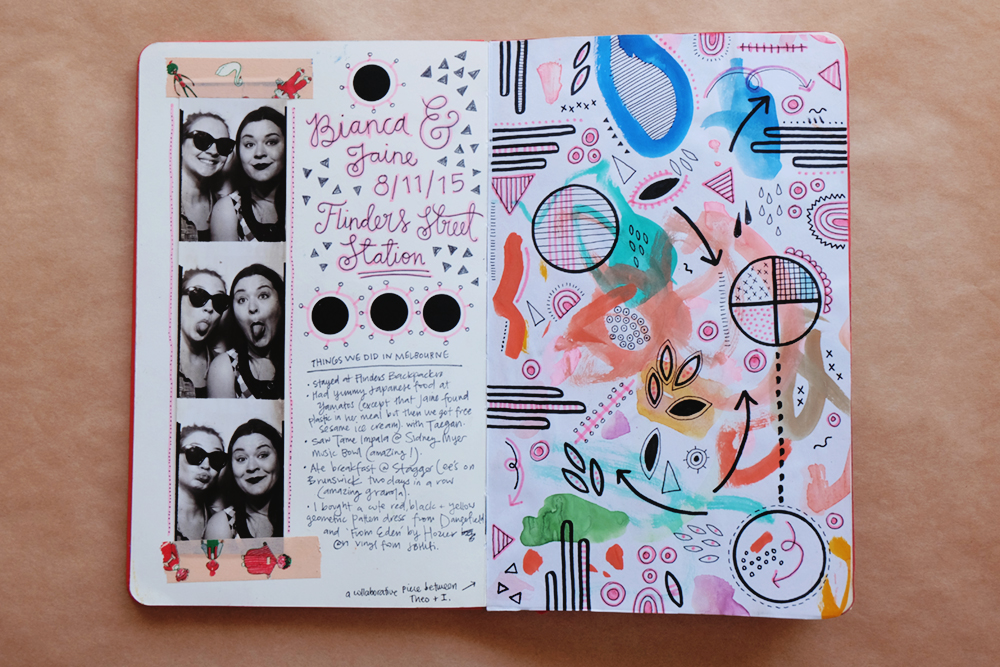 Bianca &
Jaine
8/11/15
Flinders Street
Station
THINGS WE DID IN MELBOURNE
• stayed at Flinders Backpackers
• Had yummy Japanese food at
Yamatos (except that Jaine found
plastic in her meal but then we got free
sesame ice cream). with Taegan.
• saw Tame Impala @ Sidney Myer
Music Bowl (amazing!).
• Ate breakfast @ Stagger Lee's on
Brunswick two days in a row
(amazing granola).
• I bought a cute red, black + yellow
geometric pattern dress from Dangerfield
and 'From Eden' by Hozier
on vinyl from
a collaborative piece between
Theo + I.